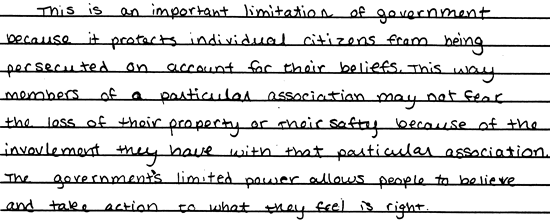 This is an important limitation of government
because it protects individual citizens from being
persecuted on account for their beliefs. This way
members of a particular association may not fear
the loss of their property or their safty because of the
invovlement they have with that particular association.
The government's limited power allows people to believe
and take action to what they feel is right.